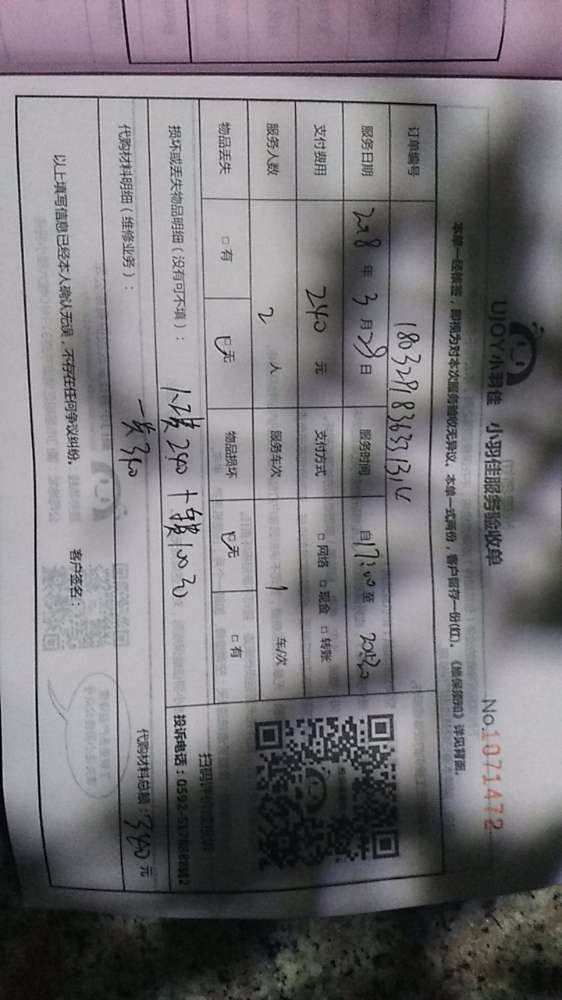 UJOY小羽佳 小羽佳服务验收单 No.1071472
本单一经签署，即视为对本次服务验收无异议。本单一式两份，客户留存一份(红)。《维保须知》详见背面。
订单编号
服务日期 2018 年 3 月 29 日 服务时间 自 17:00 至 20:30
支付费用 240 元 支付方式 □ 网络 □ 现金 □ 转账
服务人数 2 人 服务车次 1 车/次
物品丢失 □ 有 ☑ 无 物品损坏 ☑ 无 □ 有
扫码
损坏或丢失物品明细（没有可不填）： 240 + 100 投诉电话：0592-
代购材料明细（维修业务）： 代购材料总额： 340 元
以上填写信息已经本人确认无误，不存在任何争议纠纷。 客户签名：